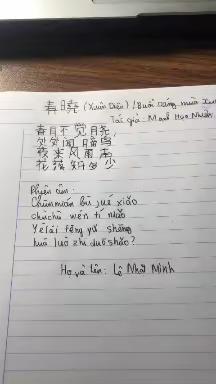 春曉 (Xuân Diệu) / Buổi sáng mùa Xuân
Tác giả: Mạnh Hạo Nhiên
春月不觉晓,
处处闻啼鸟
夜来风雨声
花落知多少
Phiên âm:
Chūnmián bù jué xiǎo
chùchù wén tí niǎo
Yè lái fēng yǔ shēng
huā luò zhī duō shǎo?
Họ và tên: Lê Nhã Minh